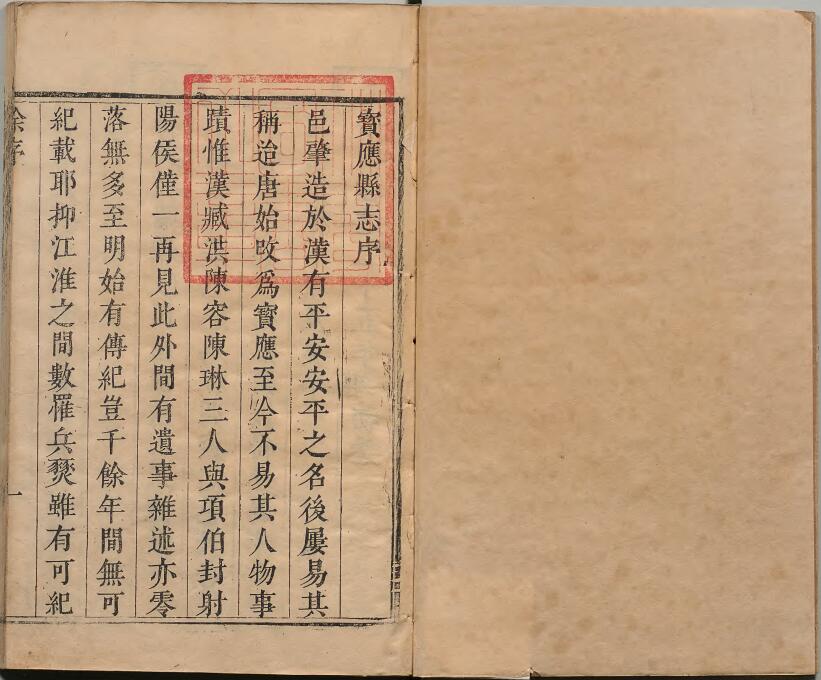 寶應縣志序
邑肇造於漢有平安安平之名後屢易其
稱迨唐始改爲寶應至今不易其人物事
蹟惟漢臧洪陳容陳琳三人與項伯封射
陽侯僅一再見此外間有遺事雜述亦零
落無多至明始有傳紀豈千餘年間無可
紀載耶抑江淮之間數罹兵燹雖有可紀
一